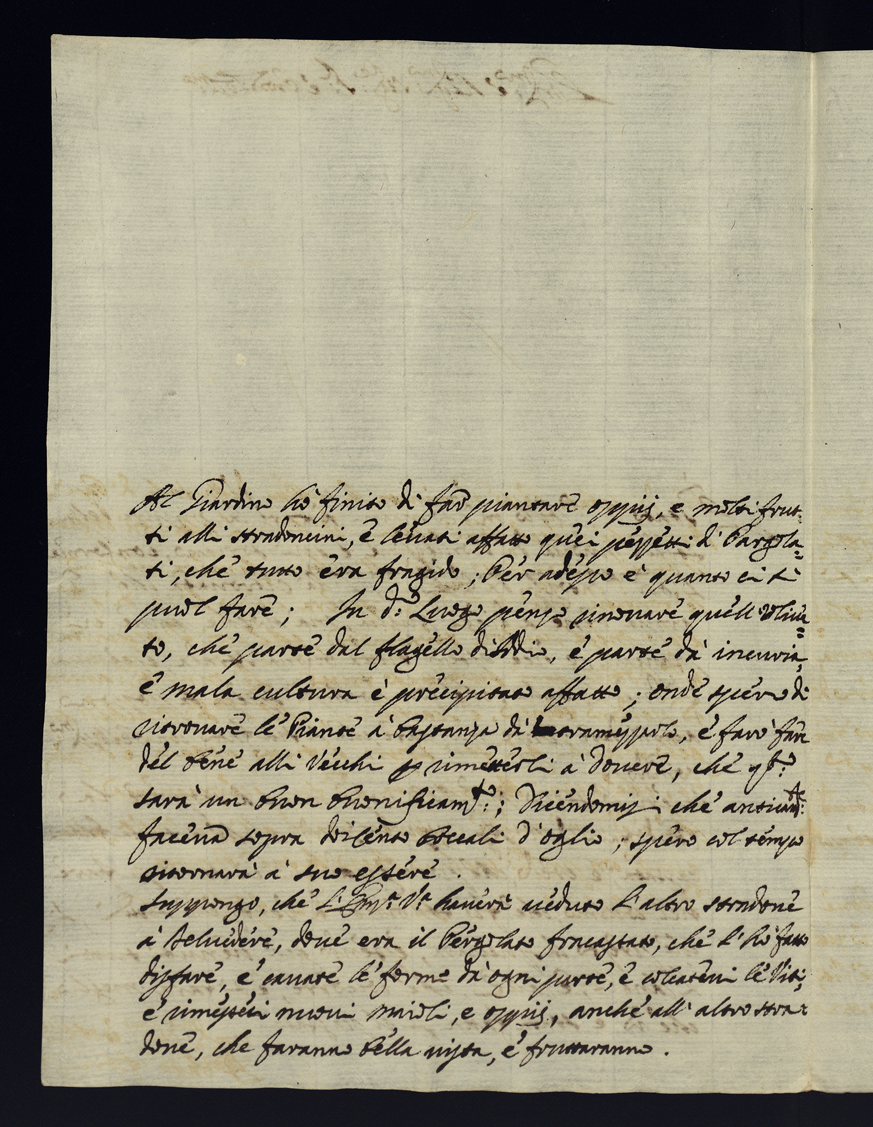 Al Giardino hò finito di far piantare oppij, e molti frut-
ti alli stradoncini, è levati affatto quei pezzetti di Pargola=
ti, che tutto èra fragido; Per adesso è quanto ci si
puol farè; In d.º Luogo penso rinovarè quell'oliva=
to, che partè dal flagello di Iddio, è partè dà incuria,
è mala cultura è prècipitato affatto; ondè spèro di
ritrovarè lè Piantè à bastanza dà trameszarlo, è farò farè
dèl bènè alli Vècchi p rimèttèrli à doverè, chè
sarà un buon buonificam.to; Dicèndomisi chè anticam.te
facèva sopra boccali d'oglio; spèro col tèmpo
ritornarà à suo èssèrè.
Suppongo, chè L'Em.ª V.ª haverà vèduto l'altro stradonè
à Bèlvèdèrè, dovè era il Pèrgolato fracassato, chè l'hò fatto
disfarè, è cavatè lè formè dà ogni partè, è colcatèvi lè Viti,
è rimèssèvi nuovi maioli, e oppij, anchè all'altro stra-
donè, che faranno bèlla vista, è fruttaranno.